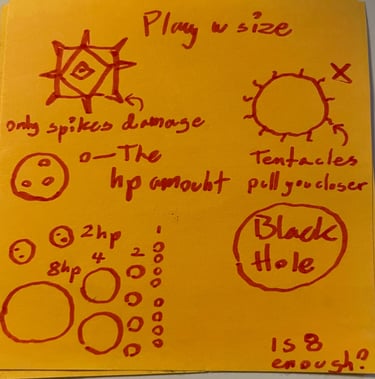 Play w size
only spikes damage
X
o—The
hp amount
Tentacles
pull you closer
2hp
8hp 4 2 1
Black
Hole
Is 8
enough?